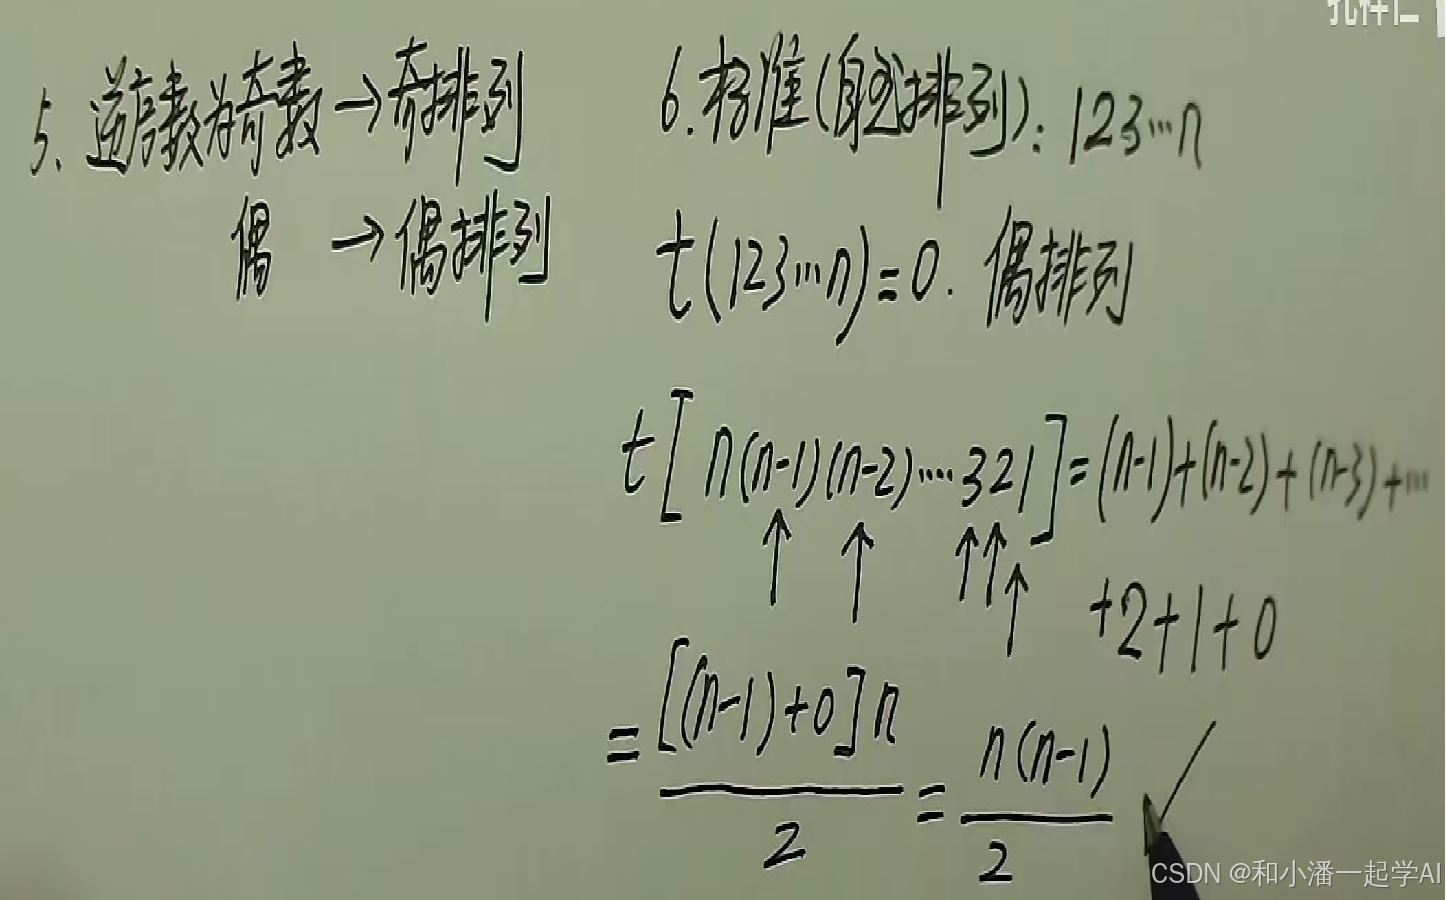 5. 逆序数为奇数→奇排列
偶 → 偶排列
6. 标准(自然排列): 123…n
t(123…n)=0. 偶排列
t[n(n-1)(n-2)····321]=(n-1)+(n-2)+(n-3)+…
+2+1+0
=[(n-1)+0]n/2=n(n-1)/2
CSDN @和小潘一起学AI